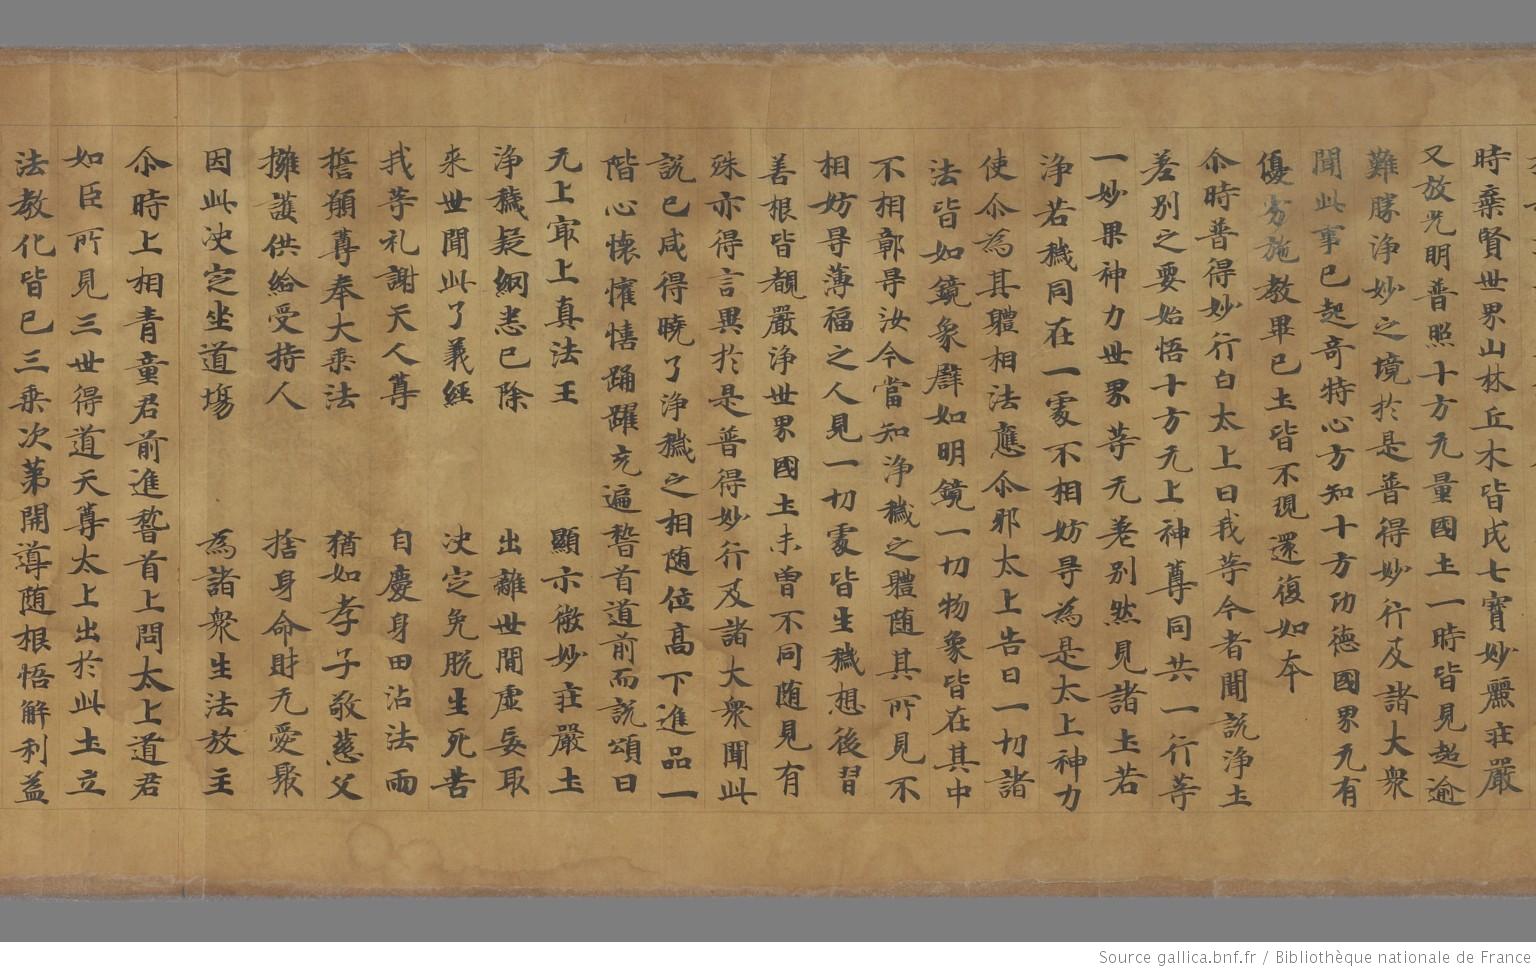 時棄賢世界山林丘木皆成七寶妙麗庄嚴
又放光明普照十方无量國土一時皆見超逾
難勝浄妙之境於是普得妙行及諸大衆
聞此事已起奇特心方知十方功德國界无有
優劣施教畢已土皆不現還復如本
尒時普得妙行白太上曰我等今者聞說浄土
差別之要始悟十方无上神尊同共一行等
一妙果神力世界等无差別然見諸土若
浄若穢同在一處不相妨㝵為是太上神力
使尒為其體相法應尒邪太上告曰一切諸
法皆如鏡象辟如明鏡一切物象皆在其中
不相鄣㝵汝今當知浄穢之體随其所見不
相妨㝵薄福之人見一切處皆生穢想後習
善根皆覩嚴浄世界國土未曽不同随見有
殊亦得言異於是普得妙行及諸大衆聞此
說已咸得曉了浄穢之相随位高下進品一
階心懷懽憘踊躍充遍嵆首道前而說頌曰
无上㝡上真法王 顯示微妙庄嚴土
浄穢疑網悉已除 出離世間虚妄取
来世聞此了義經 决定免脫生死苦
我等礼謝天人尊 自慶身田沾法雨
擔願尊奉大乘法 猶如孝子敬慈父
擁護供給受持人 捨身命財无愛𠫤
因此决定坐道塲 為諸衆生法放主
尒時上相青童君前進嵆首上問太上道君
如臣所見三世得道天尊太上出於此土立
法教化皆已三乘次第開導随根悟解利益
Source gallica.bnf.fr / Bibliothèque nationale de France